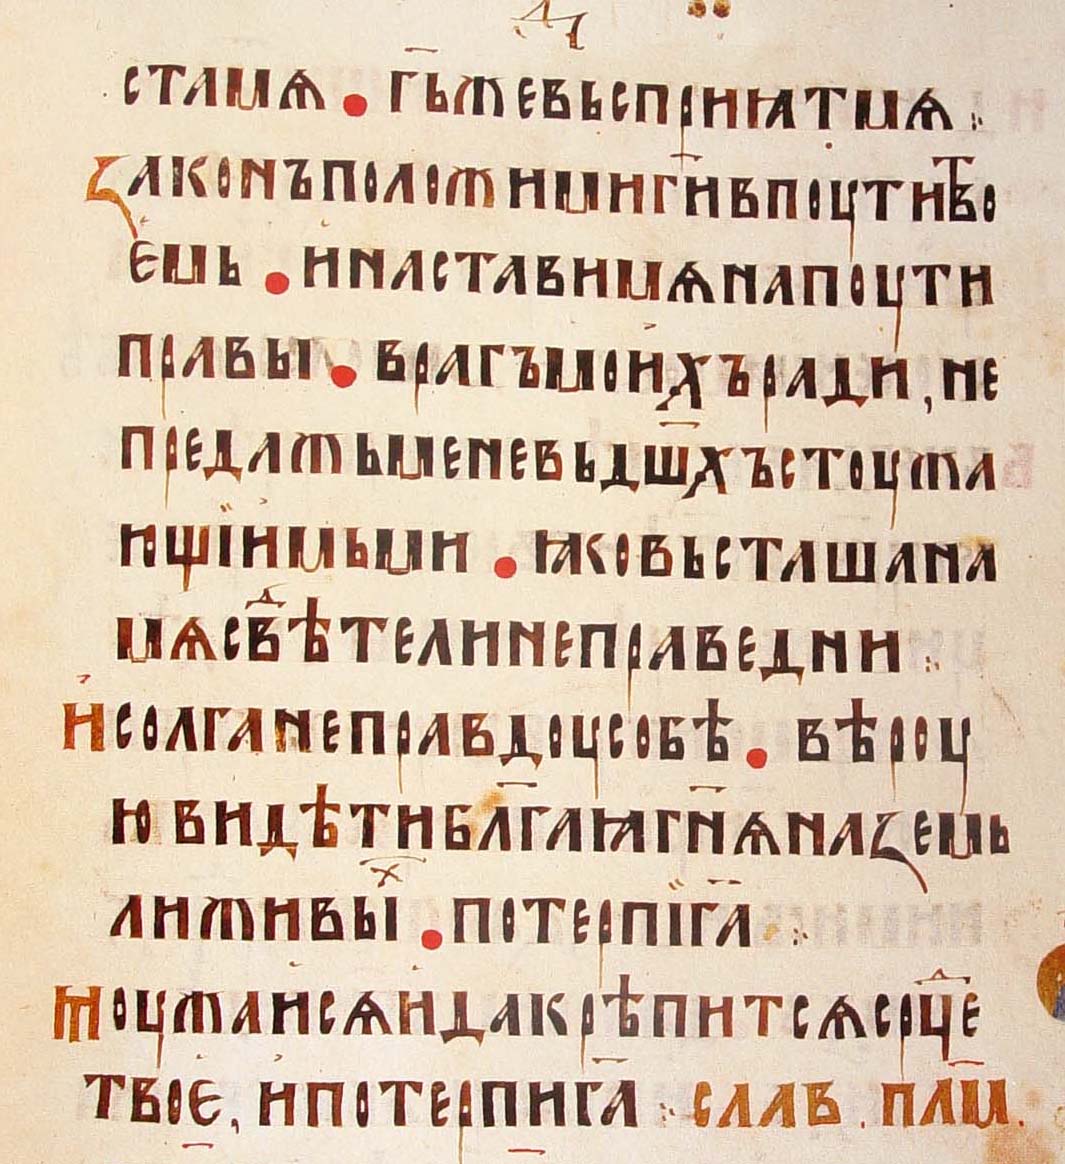 стамѧ • гь҃жевьсприꙗтмѧ ⁘
Ꙁаконъположимиги҃впоутитⷡ҇во
ємь • инаставимѧнапоути
правы • врагъмоихъради, не
предажьменевьдш҃хъстоужа
ющіимьми • ꙗковьсташана
мѧсвⷣѣтелинеправедни ⁘
Исолганеправдоусобѣ • вѣроу
ювидѣтиблг҃аꙗгн҃ѧнаꙁемь
лиживыⷯ • потерпїга҃ ⁘
Моужаисѧидакрѣпитсѧсрцⷣе
твоє, ипотерпига҃ ⁘ слав . плм҃.